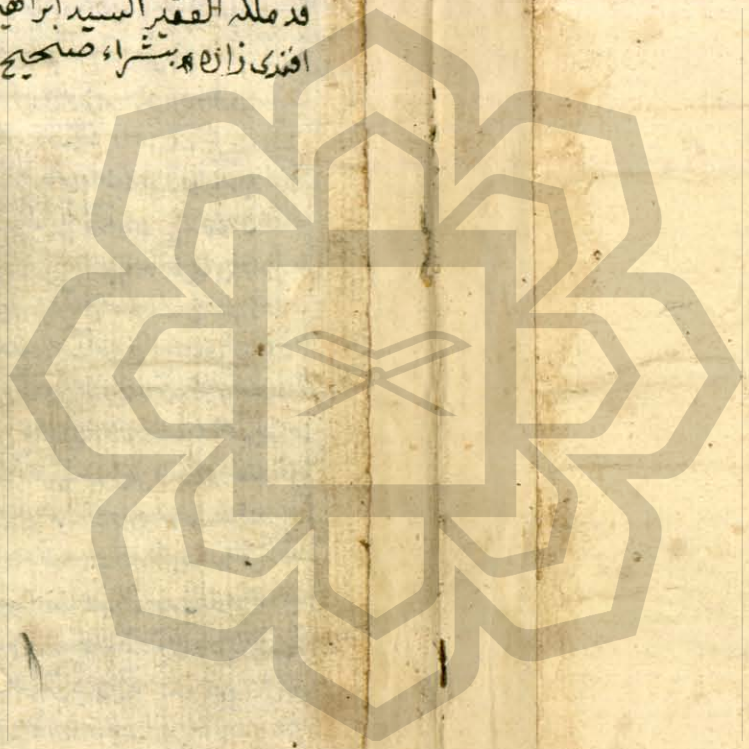 قد ملكه الفقير السيد ابراهيم
افندى زاده بشراء صحيح